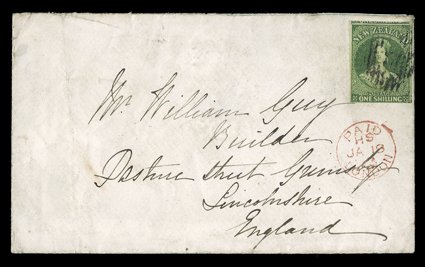 NEW ZEALAND
ONE SHILLING
Mr. William Guy
Builder
Pasture Street Grimsby
Lincolnshire
England
PAID
HS
JA 18
LONDON